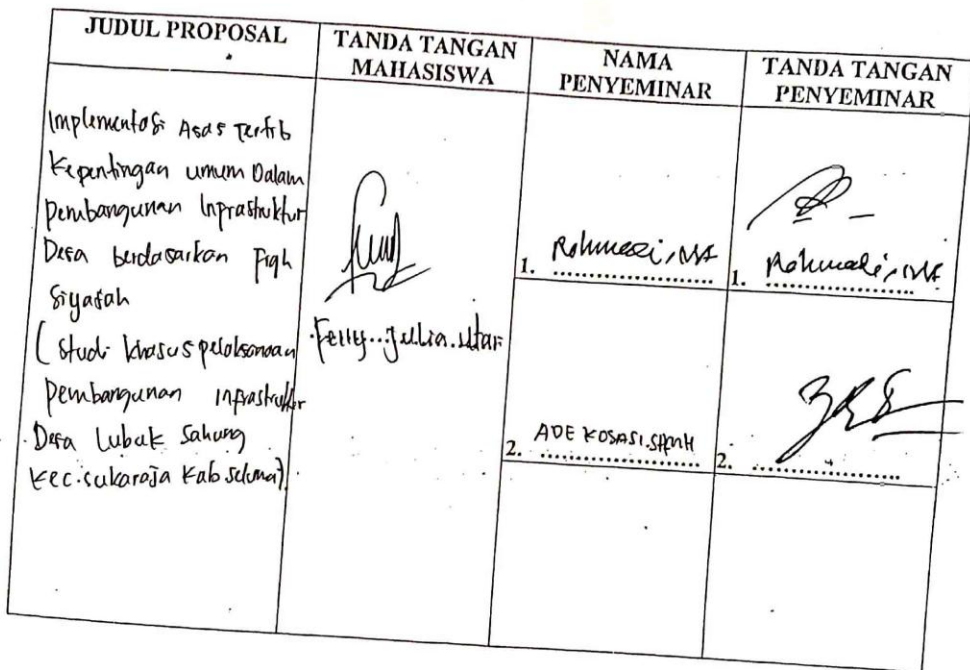 JUDUL PROPOSAL
TANDA TANGAN
MAHASISWA
NAMA
PENYEMINAR
TANDA TANGAN
PENYEMINAR
Implementasi Asas Tertib
Kepentingan umum Dalam
Pembangunan Inprastruktur
Desa berdasarkan Fiqh
Siyasah
(Studi khasus pelaksanaan
Pembangunan Infrastruktur
Desa Lubuk Sahung
Kec.sukaraja Kab seluma).
Felly Jullia
1. Rohmadi, MA
1. Rohmadi, MA
2. ADE KOSASI.SH,MH
2.